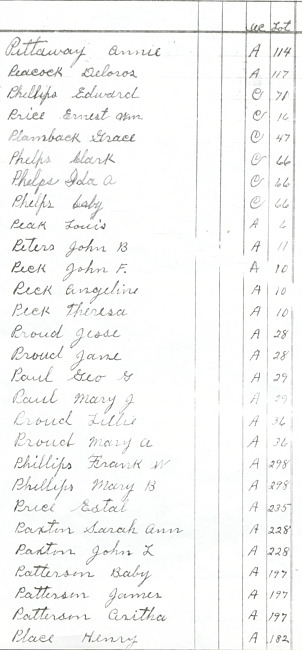 Sec Lot
Pittaway Annie A 114
Peacock Deloros A 117
Phillips Edward C 71
Price Ernest Wm C 16
Plamback Grace C 47
Phelps Clark C 66
Phelps Ida A C 66
Phelps baby C 66
Peak Louis A 6
Peters John B A 11
Peck John F. A 10
Peck Angeline A 10
Peck Theresa A 10
Proud Jesse A 28
Proud Jane A 28
Paul Geo G A 29
Paul Mary J A 29
Proud Lillie A 36
Proud Mary A A 36
Phillips Frank W A 298
Phillips Mary B A 298
Price Estal A 235
Paxton Sarah Ann A 228
Paxton John L A 228
Patterson Baby A 197
Patterson James A 197
Patterson Aritha A 197
Place Henry A 182